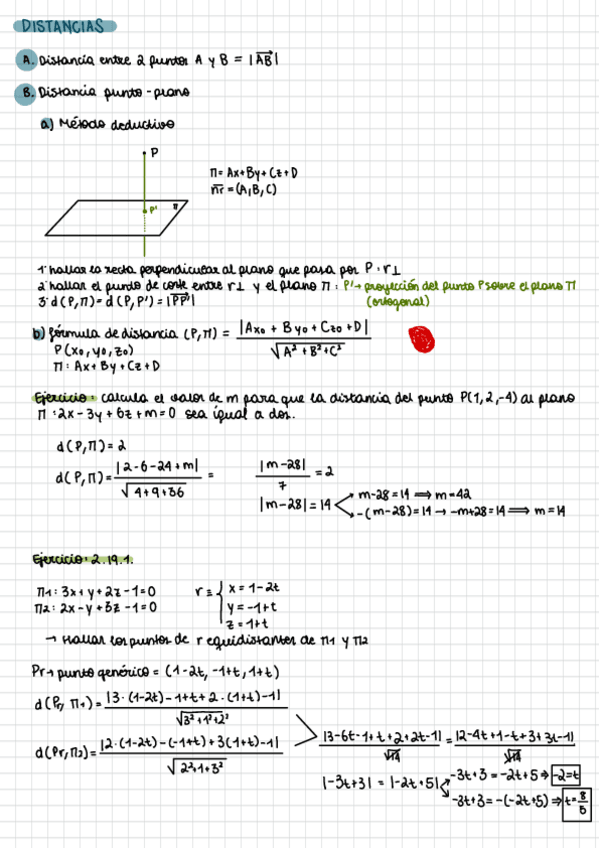 DISTANCIAS
A. Distancia entre 2 puntos A y B = |AB|
B. Distancia punto-plano
a) Método deductivo
P
P'
π
Π = Ax+By+Cz+D
nπ = (A,B,C)
1. hallar la recta perpendicular al plano que pasa por P: r⊥
2. hallar el punto de corte entre r⊥ y el plano Π : P' → proyección del punto P sobre el plano Π
(ortogonal)
3. d(P,Π) = d(P,P') = |PP'|
b) fórmula de distancia (P,Π) = |Ax₀ + By₀ + Cz₀ + D| / √A² + B² + C²
P(x₀, y₀, z₀)
Π : Ax + By + Cz + D
Ejercicio: calcula el valor de m para que la distancia del punto P(1,2,-4) al plano
Π : 2x - 3y + 6z + m = 0 sea igual a dos.
d(P,Π) = 2
d(P,Π) = |2-6-24+m| / √4+9+36 = |m-28| / 7 = 2
|m-28| = 14
m-28 = 14 ⟹ m = 42
-(m-28) = 14 → -m+28 = 14 ⟹ m = 14
Ejercicio: 2.19.1.
Π1: 3x+y+2z-1=0
Π2: 2x-y+3z-1=0
r ≡ { x = 1-2t
y = -1+t
z = 1+t
→ Hallar los puntos de r equidistantes de Π1 y Π2
Pr → punto genérico = (1-2t, -1+t, 1+t)
d(Pr, Π1) = |3·(1-2t)-1+t+2·(1+t)-1| / √3²+1²+2²
d(Pr, Π2) = |2·(1-2t)-(-1+t)+3(1+t)-1| / √2²+1+3²
|3-6t-1+t+2+2t-1| / √14 = |2-4t+1-t+3+3t-1| / √14
|-3t+3| = |-2t+5|
-3t+3 = -2t+5 ⟹ -2=t
-3t+3 = -(-2t+5) ⟹ t=8/5